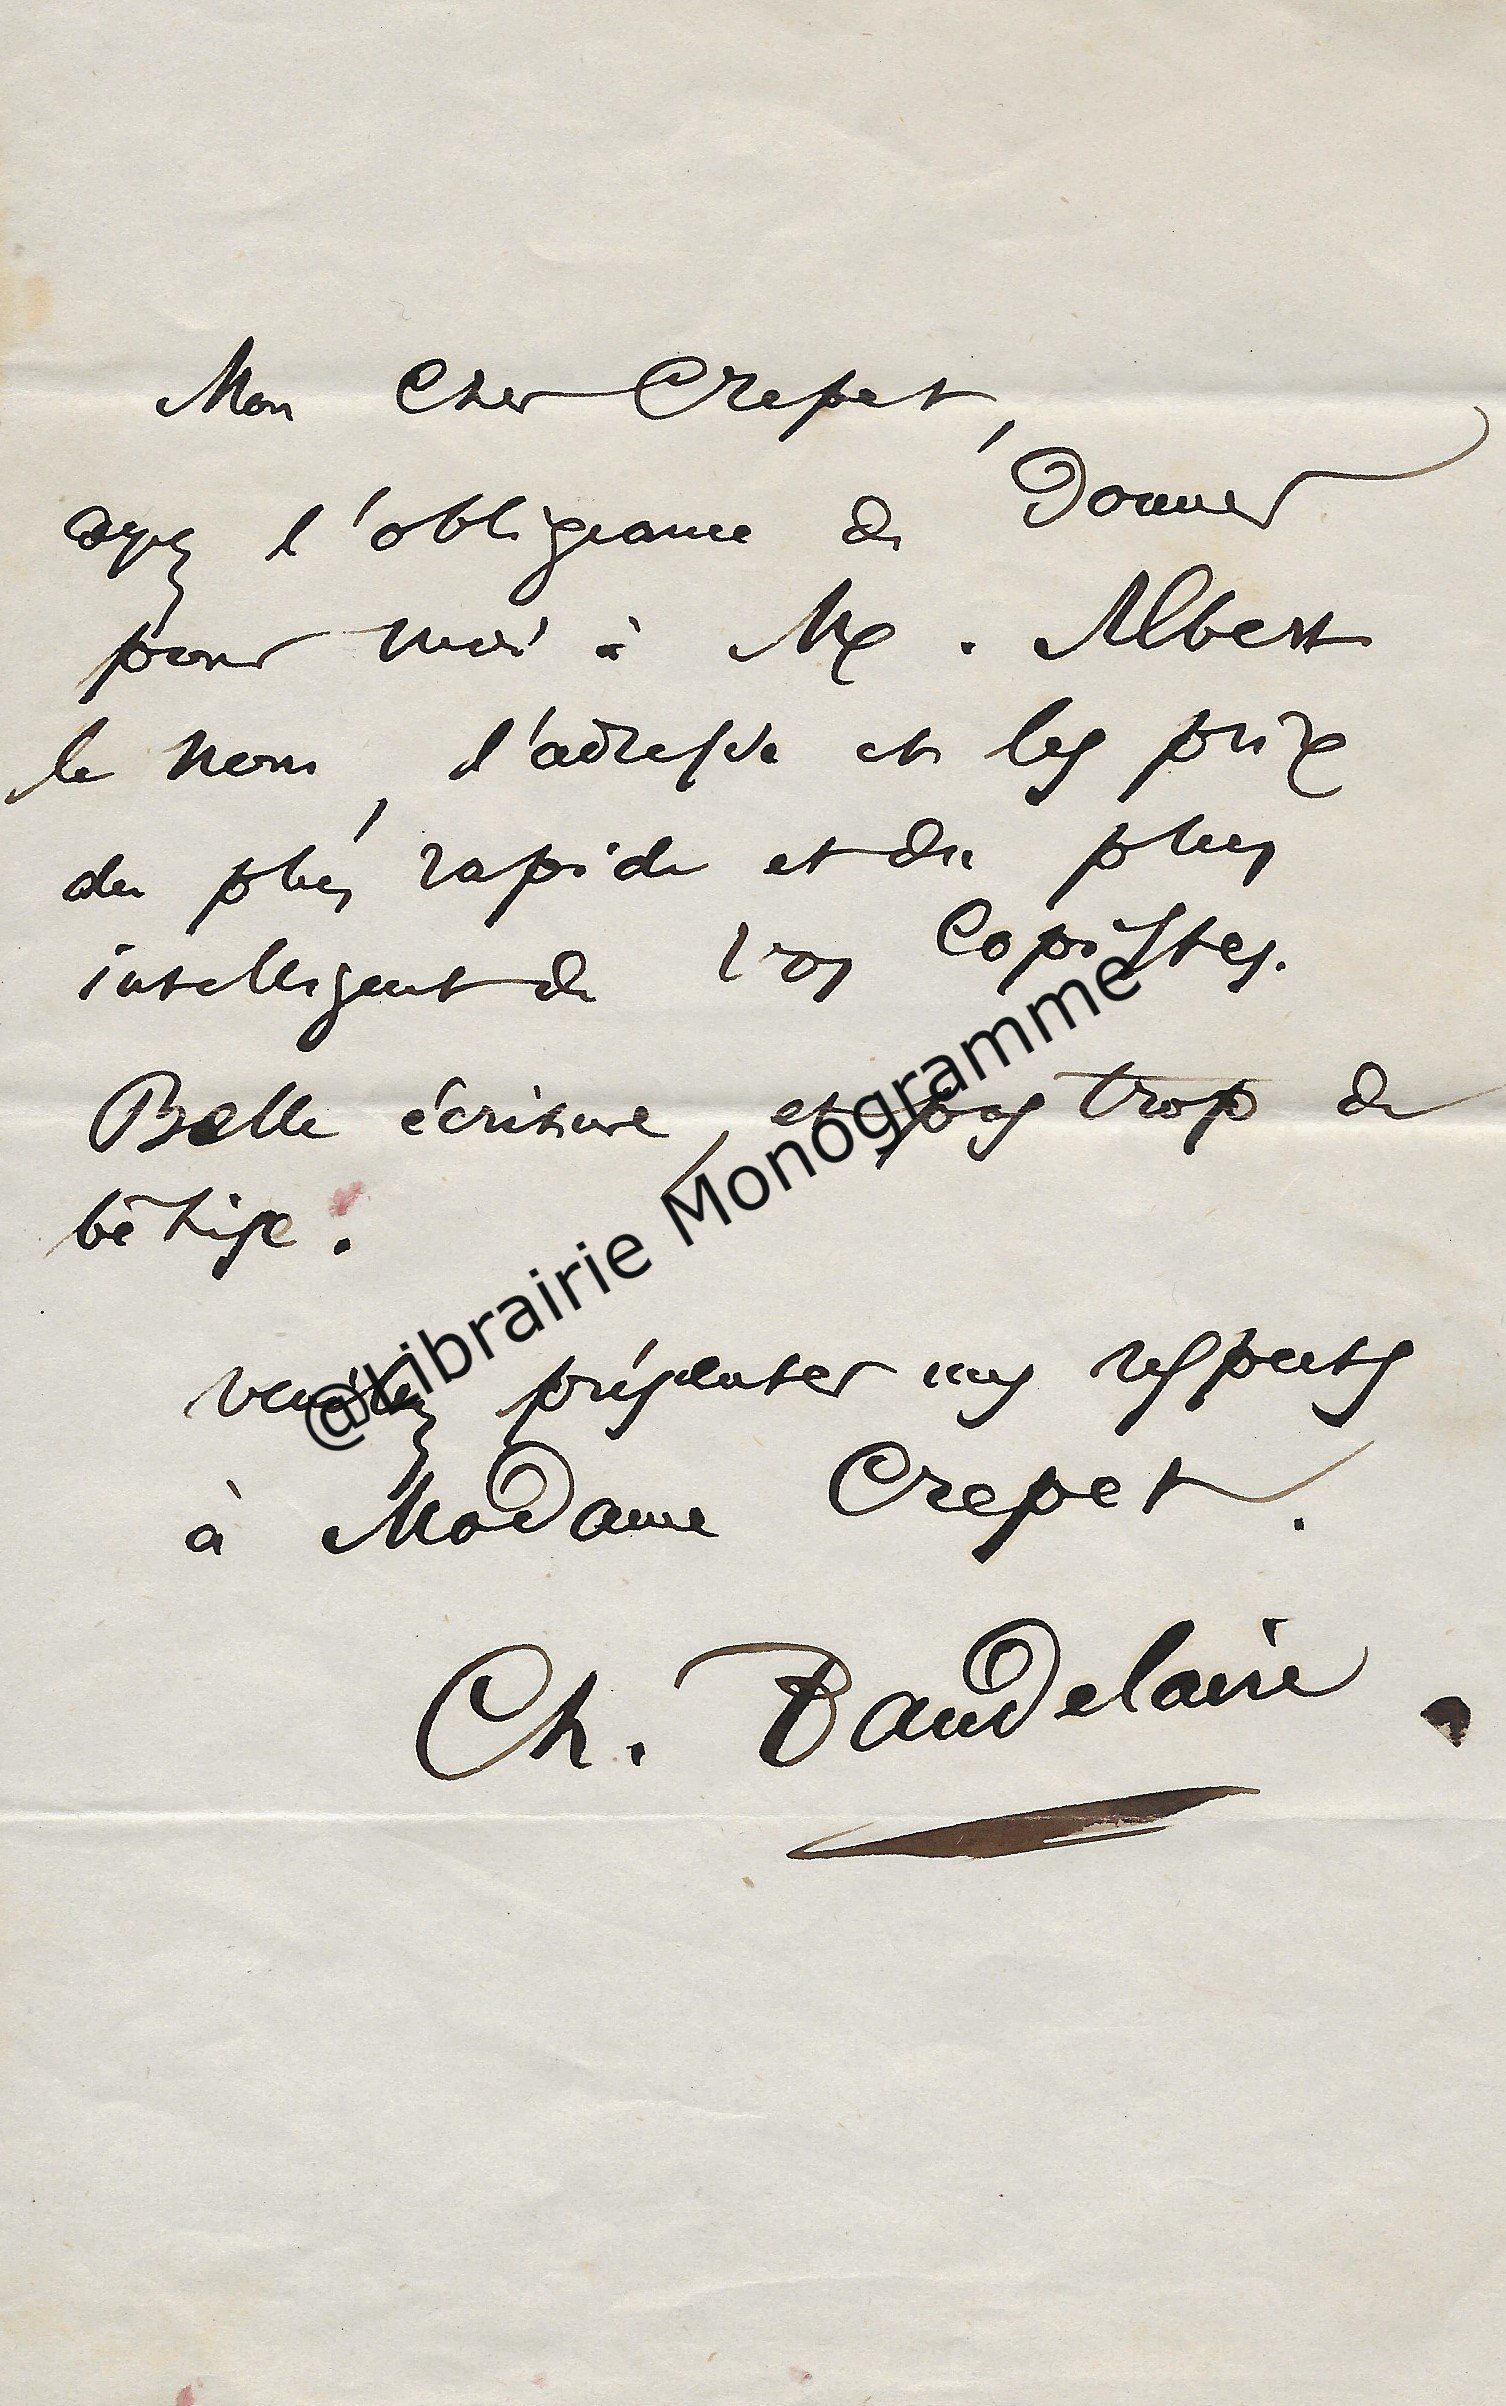 Mon Cher Crepet,
ayez l'obligeance de Donner
pour moi à Mr. Albert
le nom, l'adresse et les prix
du plus rapide et du plus
intelligent de vos Copistes.
Belle écriture, et pas trop de
bêtise.
veuillez présenter mes respects
à Madame Crepet.
Ch. Baudelaire
@Librairie Monogramme